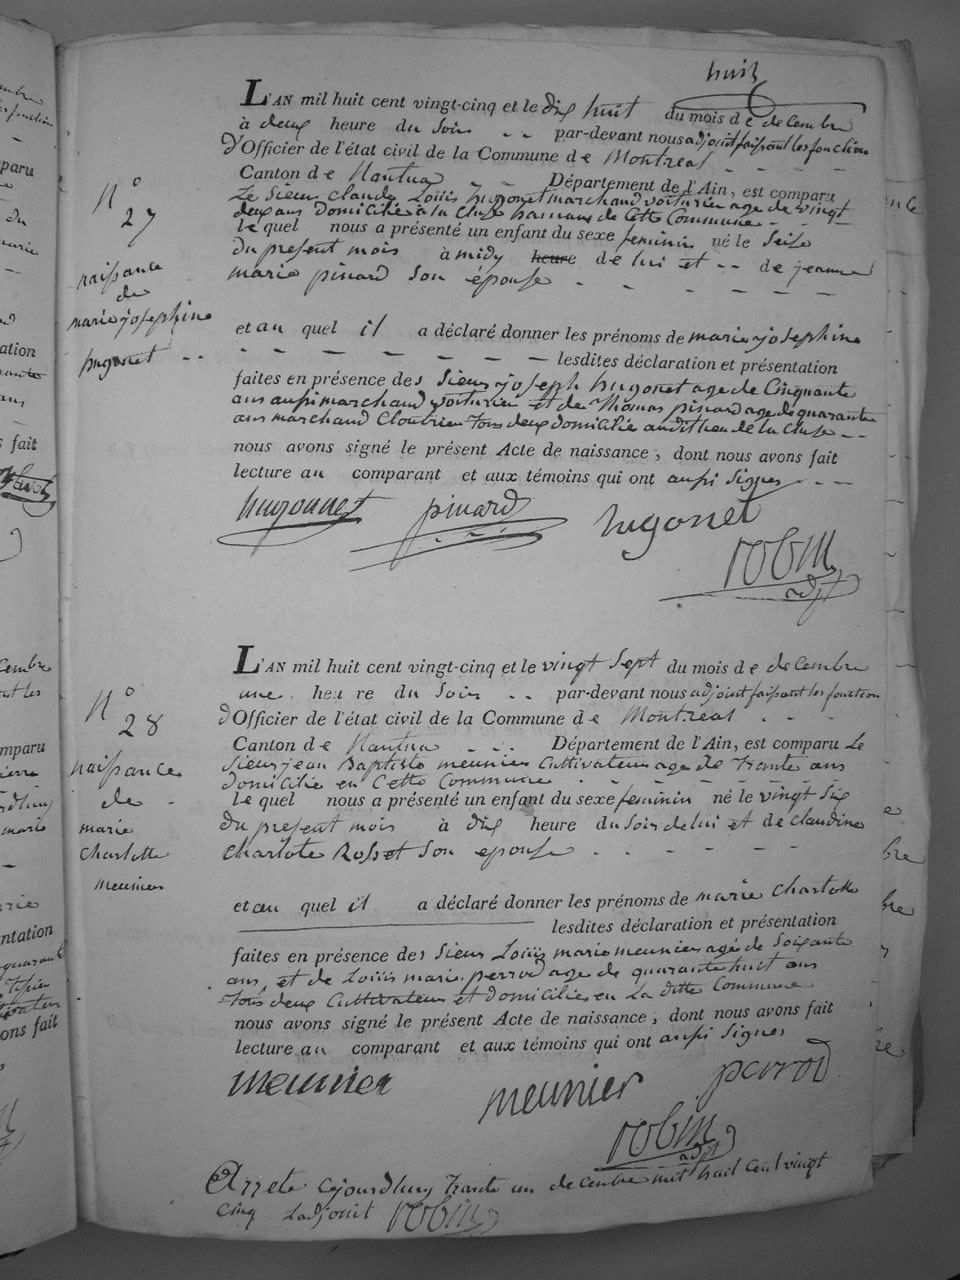 huit
L'AN mil huit cent vingt-cinq et le dix huit du mois de decembre
à deux heure du soir par-devant nous adjoint faisant les fonction
d'Officier de l'état civil de la Commune de Montreal
Canton de Nantua Département de l'Ain, est comparu
Le Sieur claude Louis hugonet marchand voiturier age de vingt
deux ans domicilié à la cluse hameau de cette Commune
lequel nous a présenté un enfant du sexe feminin né le seise
du present mois à midy heure de lui et de jeanne
marie pinard son épouse
N° 27
naissance
de
marie josephine
hugonet
et au quel il a déclaré donner les prénoms de marie josephine
lesdites déclaration et présentation
faites en présence des Sieurs joseph hugonet age de Cinquante
ans aussi marchand voiturier et de Thomas pinard age de quarante
ans marchand Cloutrier tous deux domicilié audit lieu de la cluse
nous avons signé le présent Acte de naissance, dont nous avons fait
lecture au comparant et aux témoins qui ont aussi signes
hugonnet pinard hugonet
robin
adjt
L'AN mil huit cent vingt-cinq et le vingt sept du mois de decembre
une heure du soir par-devant nous adjoint faisant les fonction
d'Officier de l'état civil de la Commune de Montreal
Canton de Nantua Département de l'Ain, est comparu Le
Sieur jean Baptiste meunier Cultivateur age de trante ans
domicilié en Cette Commune
lequel nous a présenté un enfant du sexe feminin né le vingt six
du present mois à dix heure du soir de lui et de claudine
charlote Rosset son epouse
N° 28
naissance
de
marie
charlotte
meunier
et au quel il a déclaré donner les prénoms de marie charlotte
lesdites déclaration et présentation
faites en présence des Sieurs Louis marie meunier agé de soixante
ans, et de Louis marie perrod age de quarante huit ans
tous deux Cultivateurs et domiciliés en La ditte Commune
nous avons signé le présent Acte de naissance, dont nous avons fait
lecture au comparant et aux témoins qui ont aussi signes
meunier meunier perrod
robin
adjt
Arrete cejourdhuy trante un decembre mil huit Cent vingt
Cinq Ladjoint robin